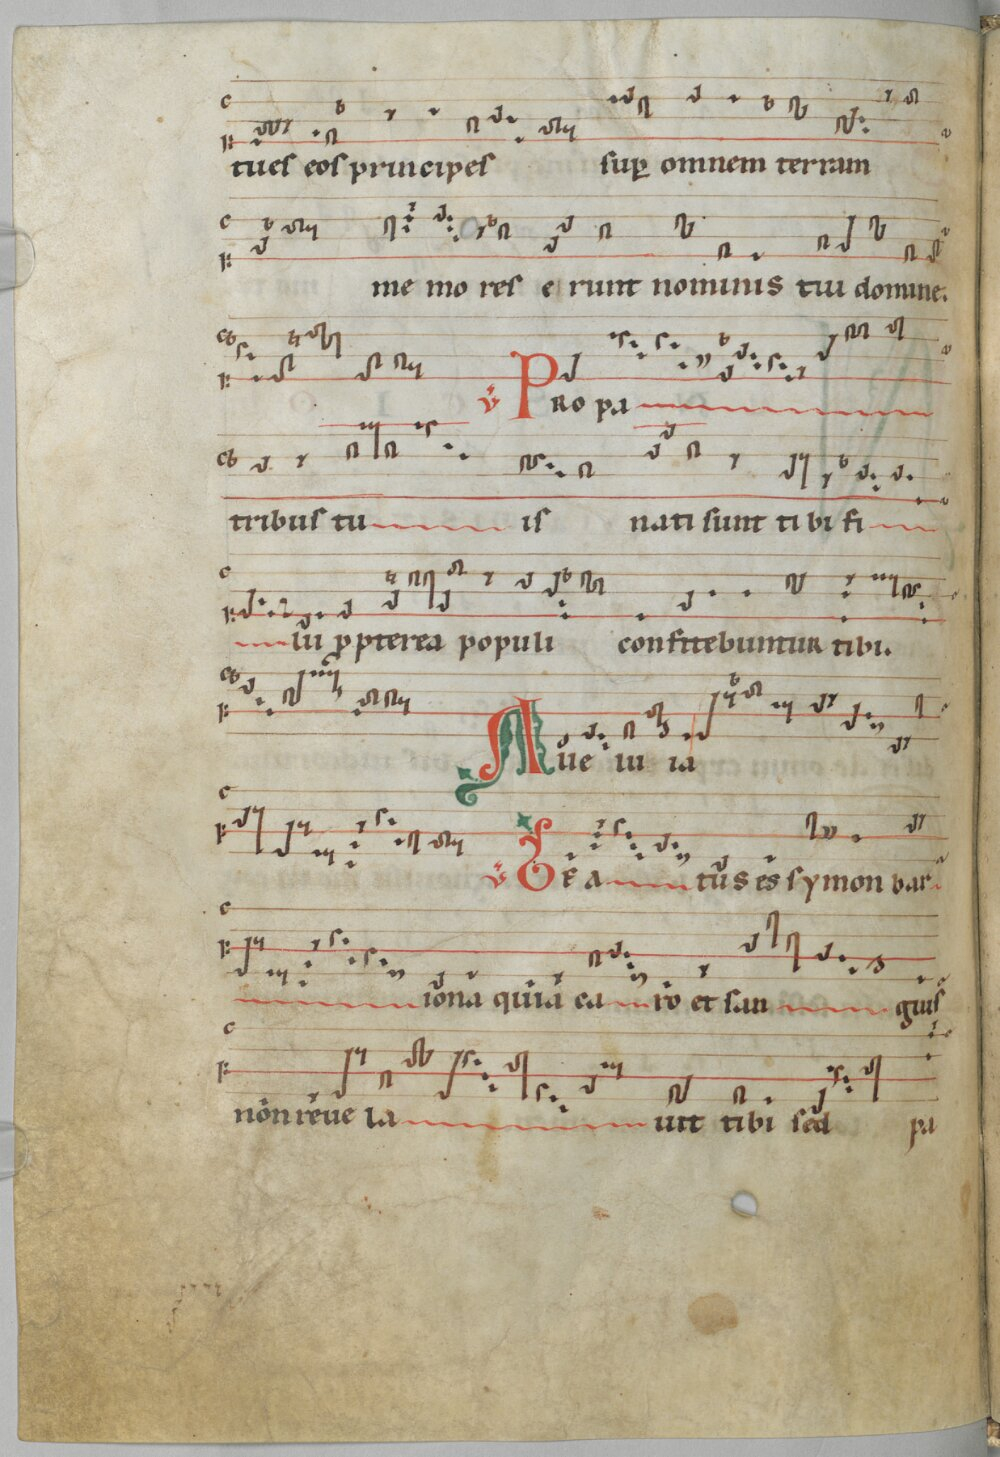 tues eos principes sup omnem terram
me mo res e runt nominis tui domine.
v Pro pa
tribus tu is nati sunt ti bi fi
lii ppterea populi confitebuntur tibi.
Alle lu ia
v Be a tus es symon bar
iona quia ca ro et san guis
non reue la uit tibi sed pa